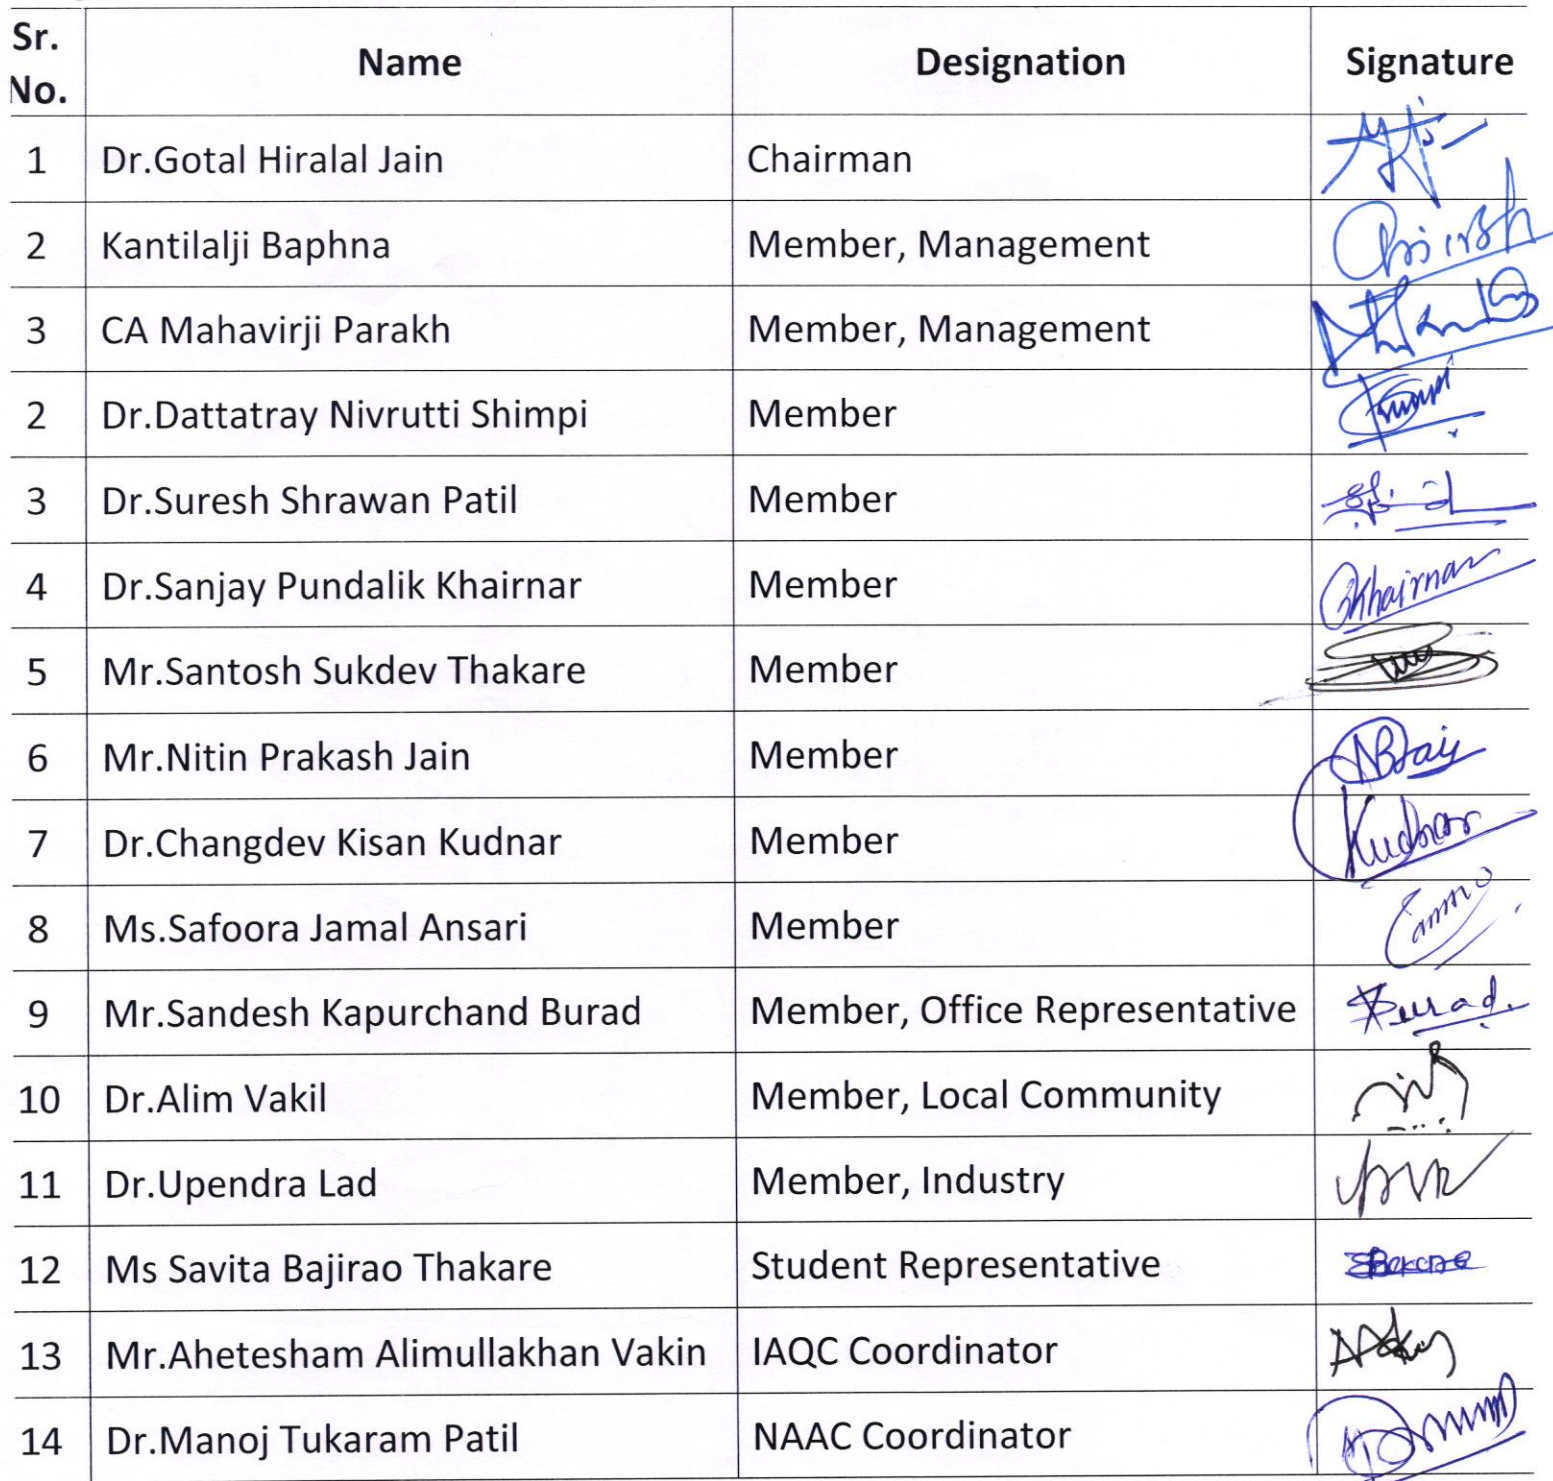 Sr. No. Name Designation Signature
1 Dr.Gotal Hiralal Jain Chairman
2 Kantilalji Baphna Member, Management
3 CA Mahavirji Parakh Member, Management
2 Dr.Dattatray Nivrutti Shimpi Member
3 Dr.Suresh Shrawan Patil Member
4 Dr.Sanjay Pundalik Khairnar Member Khairnar
5 Mr.Santosh Sukdev Thakare Member
6 Mr.Nitin Prakash Jain Member
7 Dr.Changdev Kisan Kudnar Member Kudnar
8 Ms.Safoora Jamal Ansari Member
9 Mr.Sandesh Kapurchand Burad Member, Office Representative Burad
10 Dr.Alim Vakil Member, Local Community
11 Dr.Upendra Lad Member, Industry
12 Ms Savita Bajirao Thakare Student Representative
13 Mr.Ahetesham Alimullakhan Vakin IAQC Coordinator
14 Dr.Manoj Tukaram Patil NAAC Coordinator